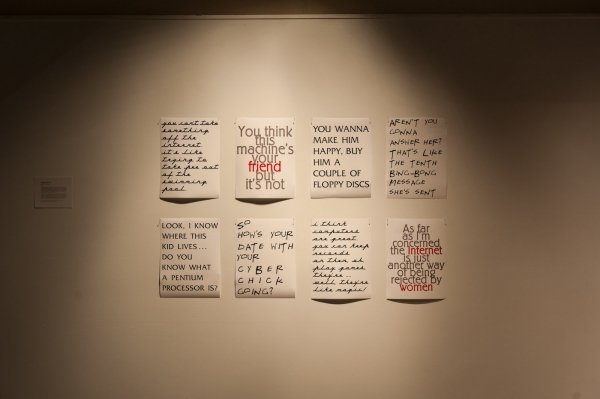 you can't take
something
off the
internet
it's like
trying to
take pee out
of the
swimming
pool
You think
this
machine's
your
friend
but
it's not
YOU WANNA
MAKE HIM
HAPPY, BUY
HIM A
COUPLE OF
FLOPPY DISCS
AREN'T YOU
GONNA
ANSWER HER?
THAT'S LIKE
THE TENTH
BING-BONG
MESSAGE
SHE'S SENT
LOOK, I KNOW
WHERE THIS
KID LIVES...
DO YOU
KNOW WHAT
A PENTIUM
PROCESSOR IS?
SO
HOW'S YOUR
DATE WITH
YOUR
CYBER
CHICK
GOING?
i think
computers
are great
you can keep
records
on them oh
play games
they're...
well they're
like magic!
As far
as I'm
concerned
the internet
is just
another way
of being
rejected by
women